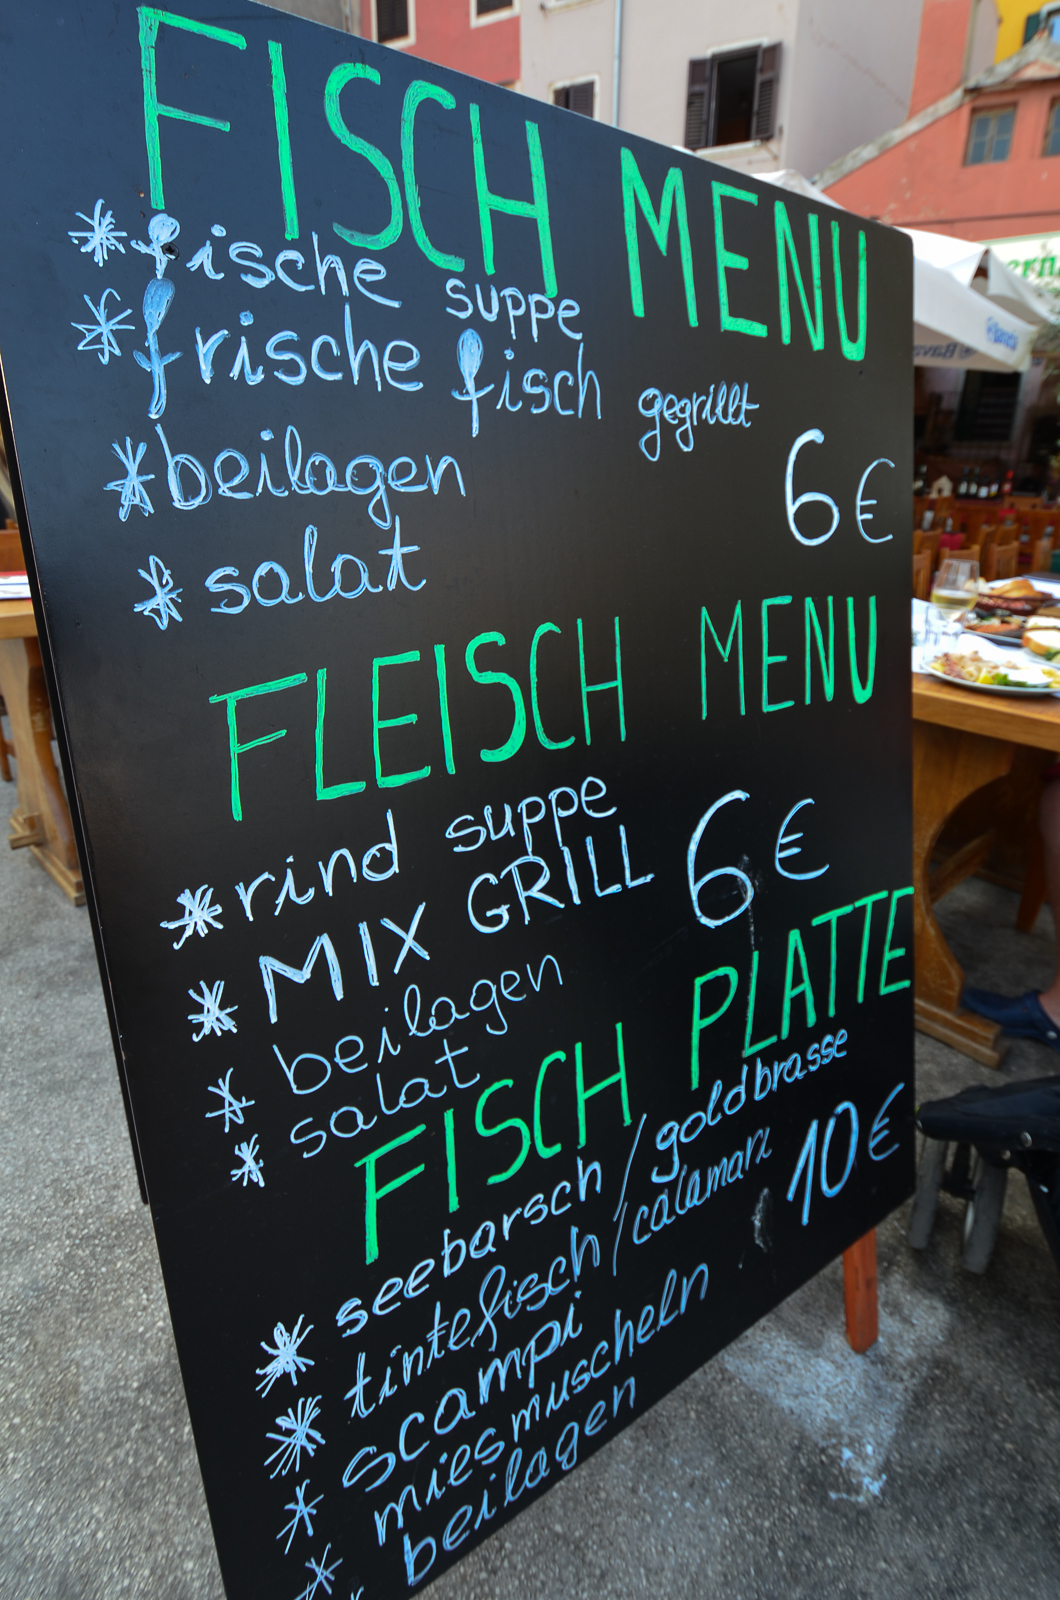 FISCH MENU
* fische suppe
* frische fisch gegrillt
* beilagen
6€
* salat
FLEISCH MENU
* rind suppe
* MIX GRILL 6€
* beilagen
* salat
FISCH PLATTE
* seebarsch/goldbrasse
* tintefisch/calamari 10€
* scampi
* miesmuscheln
* beilagen